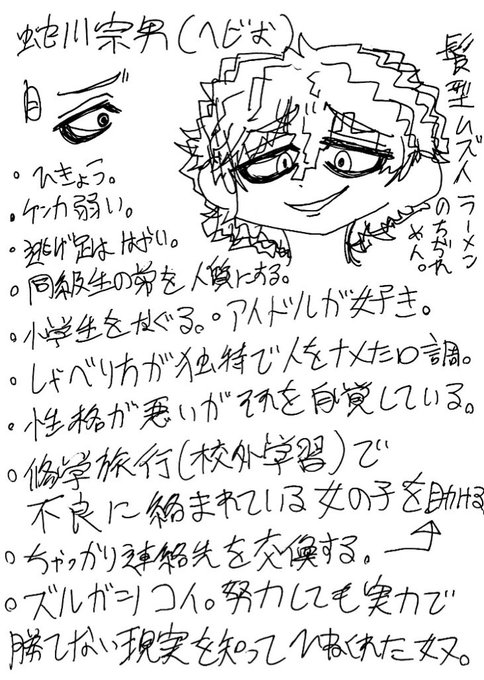 蛇川宗男(ヘビお)
目
髪型ムズイ
ラーメン
のちぢれ
めん。
・ひきょう。
・ケンカ弱い。
・逃げ足ははやい。
・同級生の弟を人質にする。
・小学生をなぐる。・アイドルが好き。
・しゃべり方が独特で人をナメた口調。
・性格が悪いがそれを自覚している。
・修学旅行(校外学習)で
不良に絡まれている女の子を助ける
・ちゃっかり連絡先を交換する。
・ズルガシコイ。努力しても実力で
勝てない現実を知ってひねくれた奴。